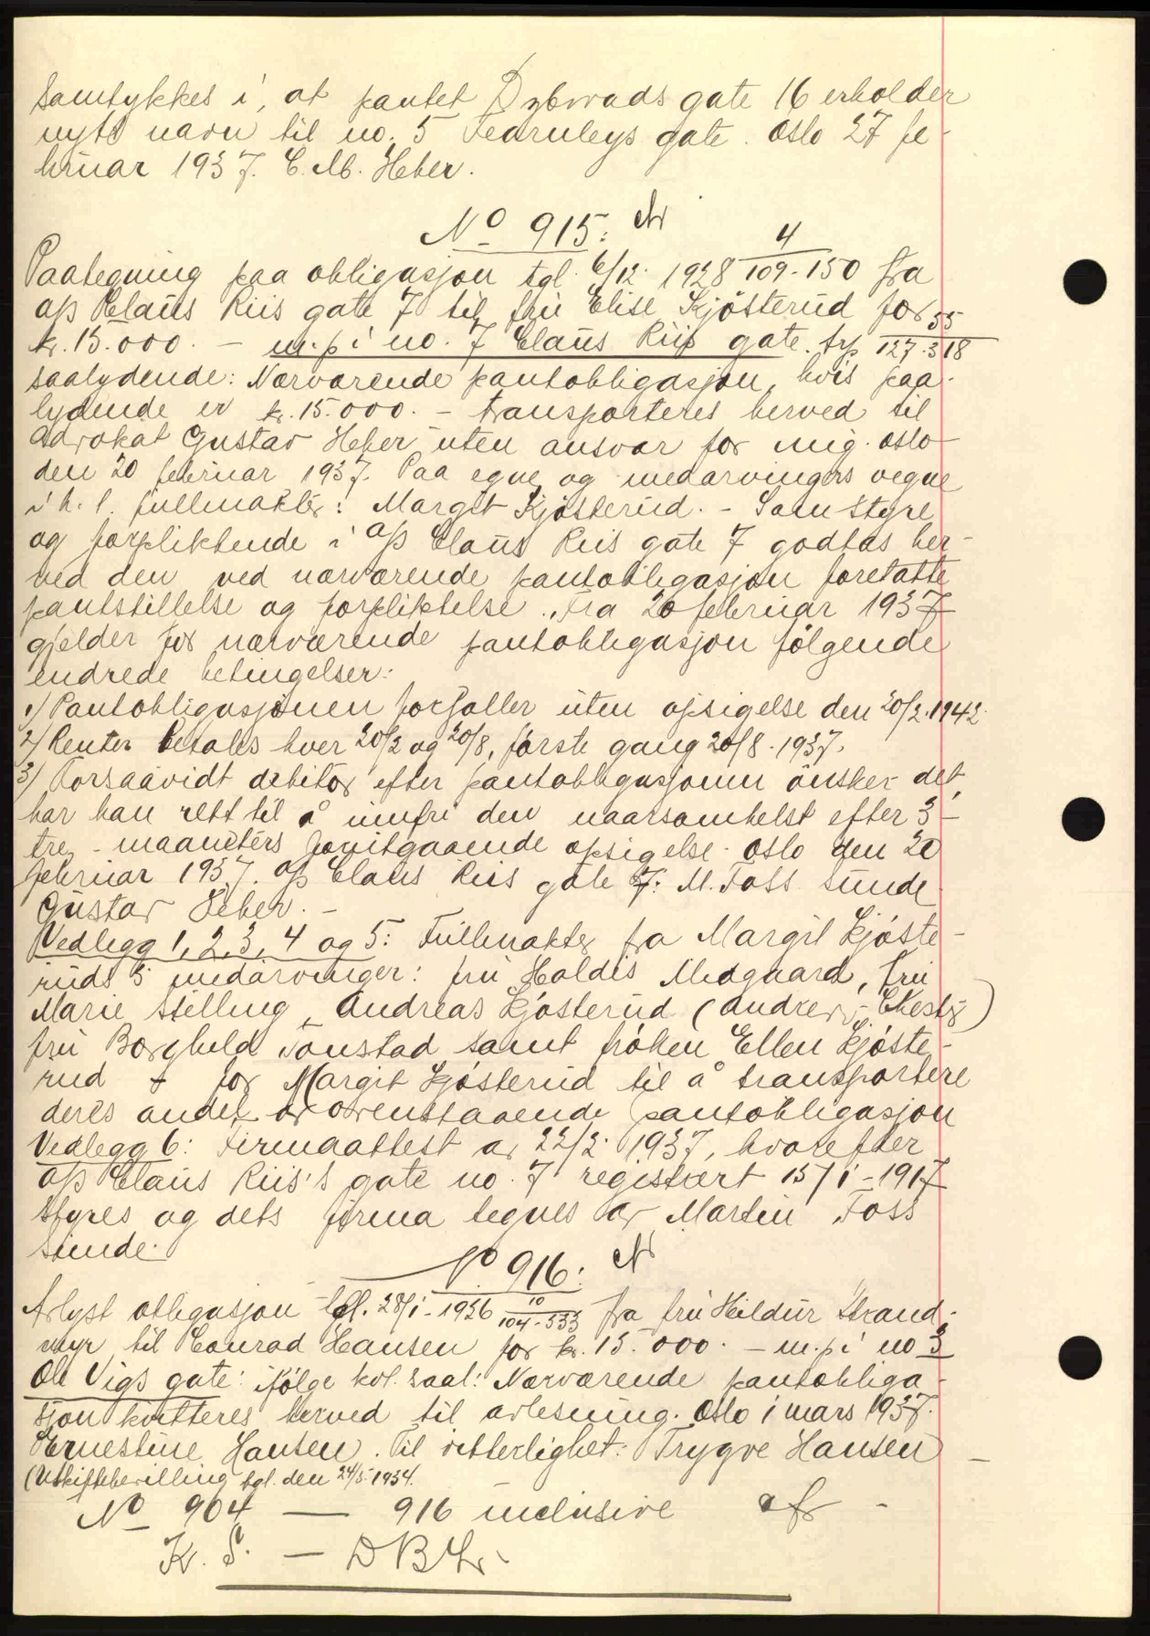 samtykkes i, at pantet Dybwads gate 16 erholder
nytt navn til no. 5 Fearnleys gate. Oslo 27 fe-
bruar 1937. C. M. Heber.
No 915:
4
Paategning paa obligasjon tgl. 6/12. 1928 109-150 fra
a/s Claus Riis gate 7 til fru Elise Kjøsterud for
55
kr. 15.000. - m.p. i no. 7 Claus Riis gate. 127-318
saalydende: Nærværende pantobligasjon, hvis paa-
lydende er kr. 15.000. - transporteres herved til
advokat Gustav Heber uten ansvar for mig. Oslo
den 20 februar 1937. Paa egne og medarvingers vegne
i h. t. fullmakter: Margit Kjøsterud. - Som styre
og forpliktende i a/s Claus Riis gate 7 godtas her-
ved den ved nærværende pantobligasjon foretatte
pantstillelse og forpliktelse. Fra 20 februar 1937
gjelder for nærværende pantobligasjon følgende
endrede betingelser:
1) Pantobligasjonen forfaller uten opsigelse den 20/2. 1942.
2) Renter betales hver 20/2 og 20/8, første gang 20/8. 1937.
3) Forsaavidt debitor efter pantobligasjonen ønsker det,
har han rett til å innfri den naarsomhelst efter 3 -
tre - maaneders forutgaaende opsigelse. Oslo den 20
februar 1937. a/s Claus Riis gate 7: M. Foss Sunde
Gustav Heber. -
Vedlegg 1, 2, 3, 4 og 5: Fullmakter fra Margit Kjøste-
ruds 5 medarvinger: fru Haldis Midgaard, fru
Marie Stilling, Andreas Kjøsterud (
fru Borghild Tonstad samt frøken Ellen Kjøste-
rud - for Margit Kjøsterud til å transportere
deres andel av ovenstaaende pantobligasjon
Vedlegg 6: Firmaattest av 22/2. 1937, hvorefter
a/s Claus Riis's gate no. 7 registrert 15/1-1917
styres og dets firma tegnes av Martin Foss
Sunde.
No 916:
10
Avlyst obligasjon tgl. 28/1-1926 104-333 fra fru Hildur Strand-
myr til Conrad Hansen for kr. 15.000. - m.p. i no 3
Ole Vigs gate: ifølge kvl. saal: Nærværende pantobliga-
sjon kvitteres herved til avlesning. Oslo 1 mars 1937.
Ernestine Hansen. Til vitterlighet: Trygve Hansen -
(Uskiftebevilling tgl. den 24/5-1934.
No 904 — 916 inclusive
K. S. —